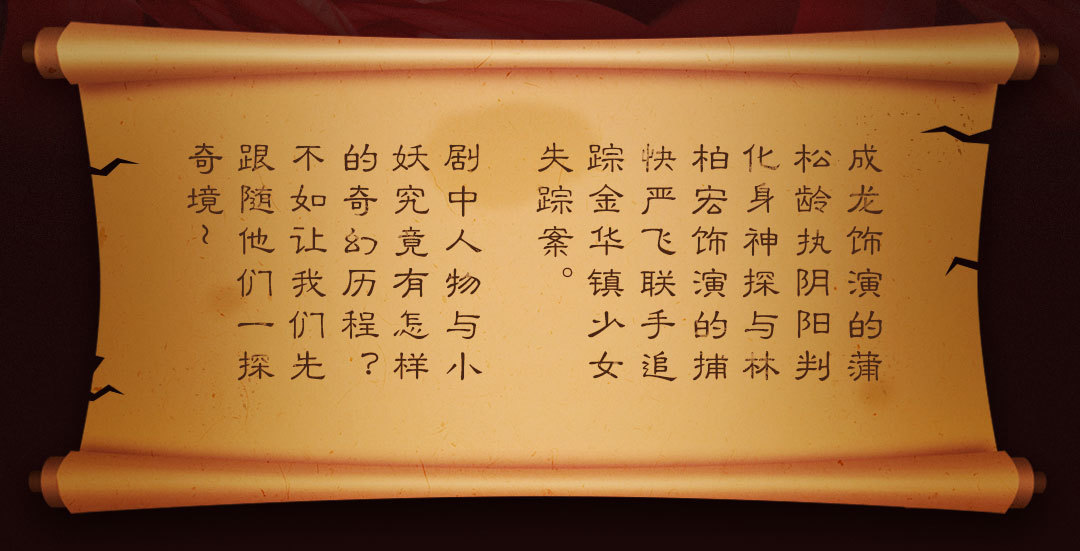 成龙饰演的蒲
松龄执阴阳判
化身神探与林
柏宏饰演的捕
快严飞联手追
踪金华镇少女
失踪案。
剧中人物与小
妖究竟有怎样
的奇幻历程？
不如让我们先
跟随他们一探
奇境~